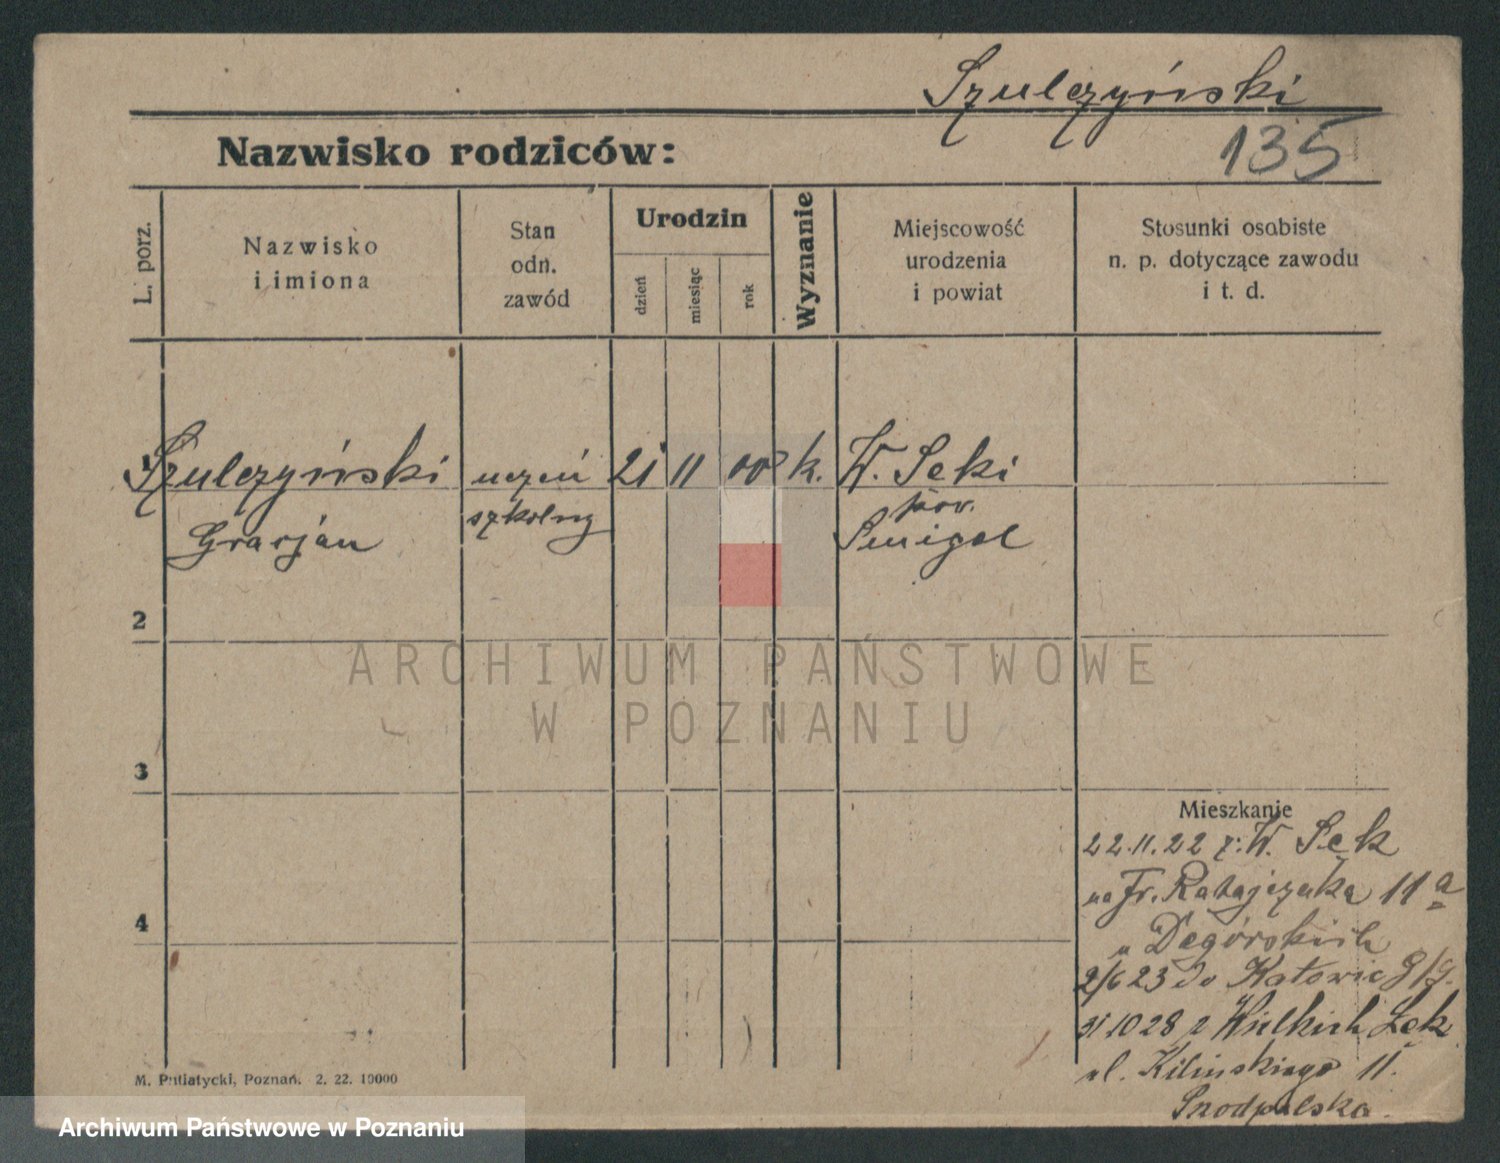 Szulczyński
Nazwisko rodziców:
135
L. porz.
Nazwisko
i imiona
Stan
odn.
zawód
Urodzin
dzień
miesiąc
rok
Wyznanie
Miejscowość
urodzenia
i powiat
Stosunki osobiste
n. p. dotyczące zawodu
i t. d.
Szulczyński uczeń 21 11 00 k. W. Seki
szkolny pow.
Grarjan Smigel
2
ARCHIWUM PAŃSTWOWE
W POZNANIU
3
Mieszkanie
22.11.22 z: W. Sęk
na Fr. Ratajczaka 11 a
u Degórskich
2/6 23 do Katowic G/g.
31 10 28 z Wielkich Łęk
ul. Kilińskiego 11.
4
M. Putiatycki, Poznań. 2. 22. 10000
Archiwum Państwowe w Poznaniu